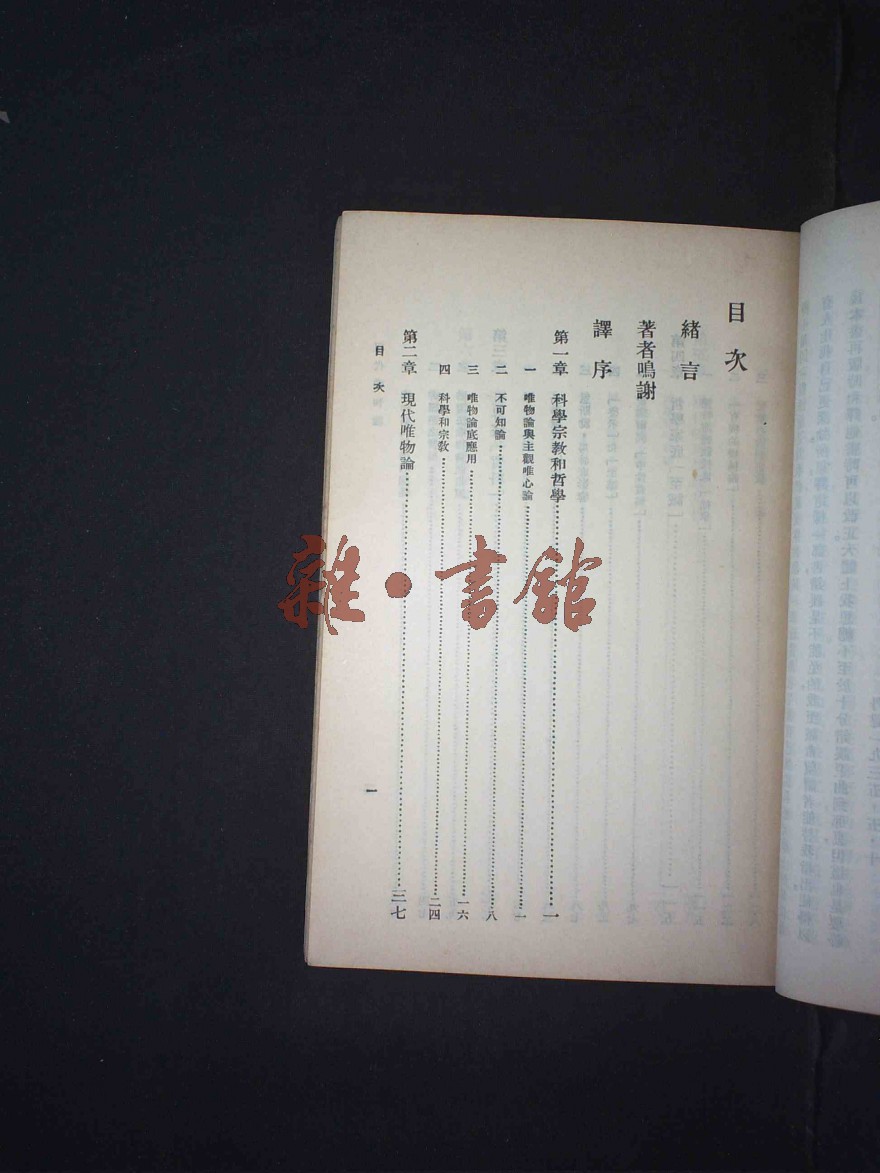 目次
緒言
著者鳴謝
譯序
第一章 科學宗教和哲學……一
一 唯物論與主觀唯心論……一
二 不可知論……八
三 唯物論底應用……一六
四 科學和宗敎……二四
第二章 現代唯物論……三七
目次
一
雜·書館